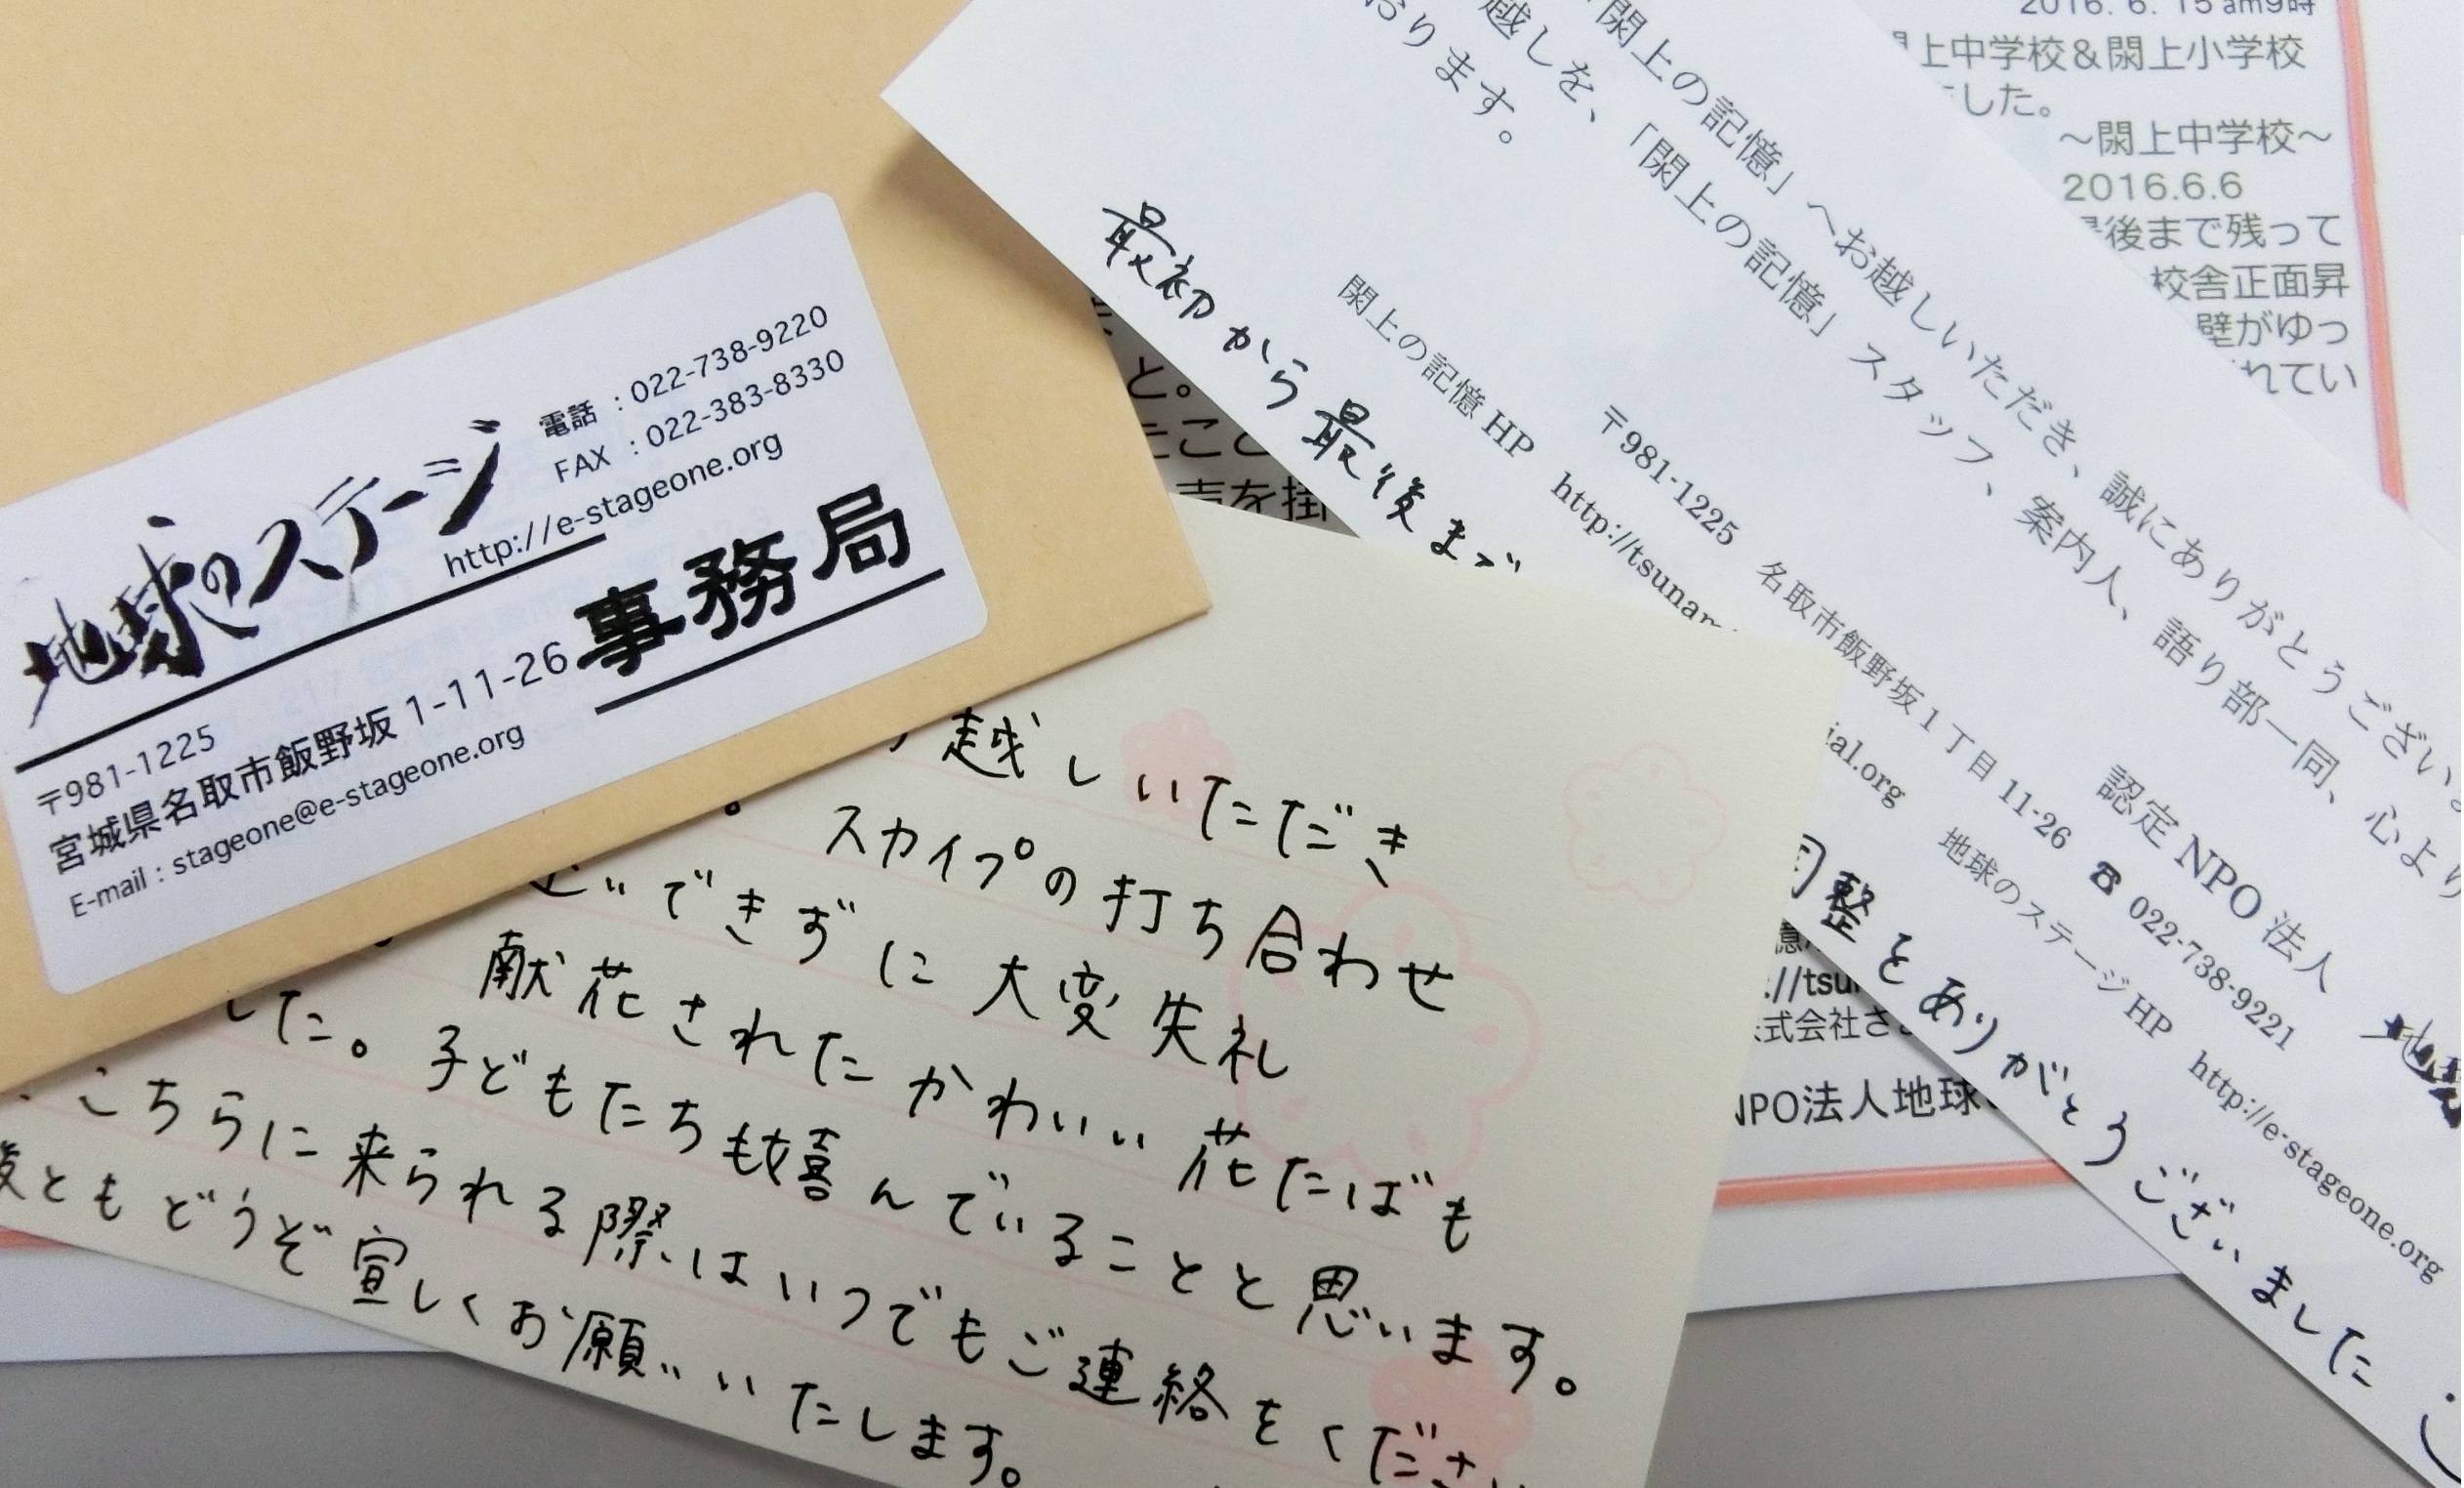 地球のステージ
電話：022-738-9220
FAX：022-383-8330
http://e-stageone.org
事務局
〒981-1225
宮城県名取市飯野坂 1-11-26
E-mail : stageone@e-stageone.org
閖上の記憶」へお越しいただき、誠にありがとうござい
越しを、「閖上の記憶」スタッフ、案内人、語り部一同、心より
おります。
認定 NPO 法人
〒981-1225 名取市飯野坂1丁目 11-26 ☎ 022-738-9221
閖上の記憶 HP http://tsunam
ial.org 地球のステージ HP http://e-stageone.org
最初から最後まで
整をありがとうございました
越しいただき
スカイプの打ち合わせ
どができずに大変失礼
した。献花されたかわいい花たばも
子どもたちも嬉んでいることと思います。
こちらに来られる際はいつでもご連絡をくださ
後ともどうぞ宣しくお願いいたします。
2016. 6. 15 am9時
上中学校＆閖上小学校
した。
～閖上中学校～
2016.6.6
最後まで残って
校舎正面昇
壁がゆっ
れてい
と。
たこと
声を掛
://tsu
式会社さ
NPO法人地球